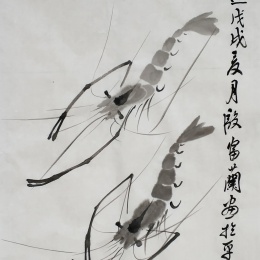 戊戌夏月殷富蘭画於平